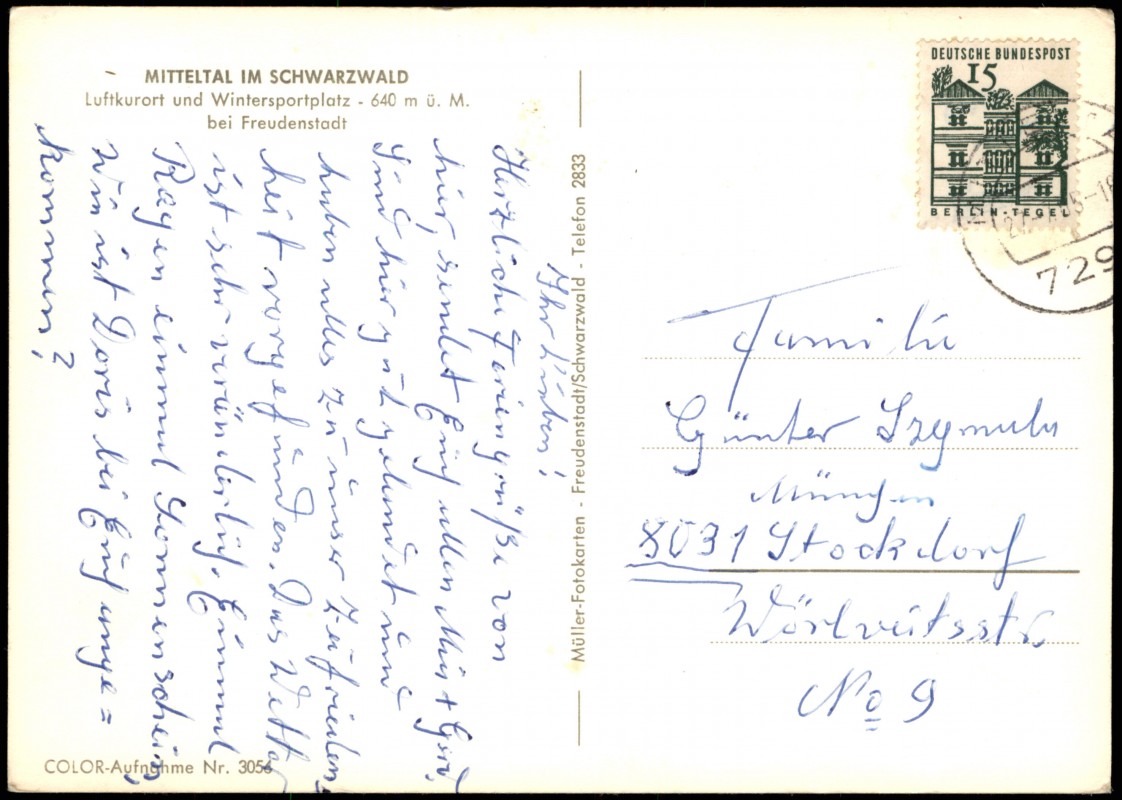 MITTELTAL IM SCHWARZWALD
Luftkurort und Wintersportplatz - 640 m ü. M.
bei Freudenstadt
Ihr Lieben!
Herzliche Feriengrüße von
hier, sendet Euch allen
Sind hier gut gelandet und
haben alles zu unser Zufrieden
heit vorgefunden. Das Wetter
ist sehr veränderlich. Einmal
Regen einmal Sonnenschein,
Wie ist Doris bei Euch ange=
kommen?
COLOR-Aufnahme Nr. 3056
Müller-Fotokarten - Freudenstadt/Schwarzwald - Telefon 2833
DEUTSCHE BUNDESPOST
15
BERLIN-TEGEL
729
Familie
Günter
München
8031 Stockdorf
No 9